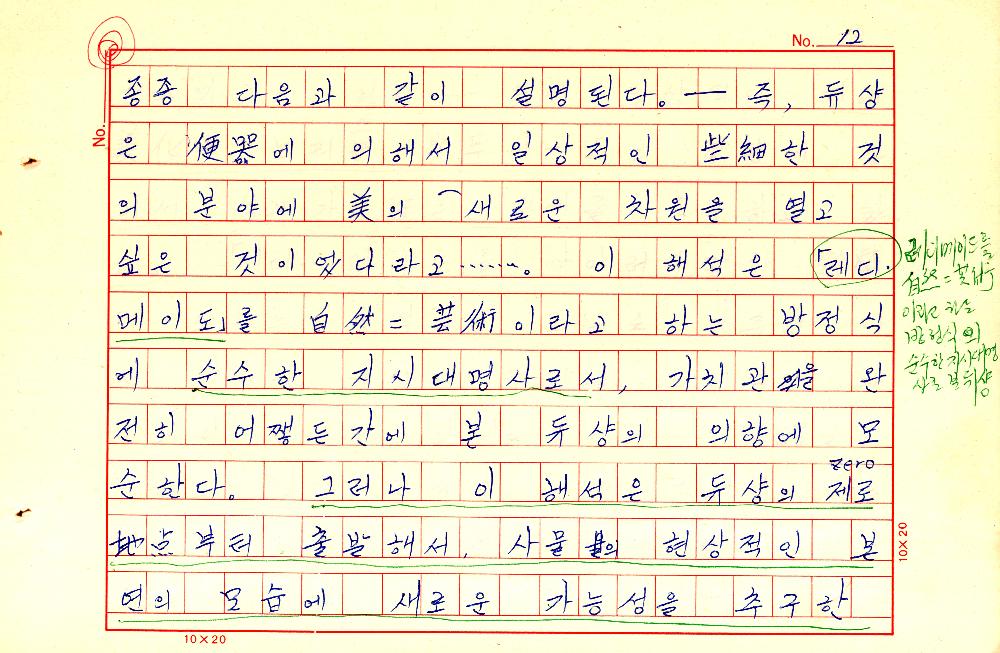 No. 12
No.
종종 다음과 같이 설명된다. — 즉, 듀샹
은 便器에 의해서 일상적인 些細한 것
의 분야에 美의 새로운 차원을 열고
싶은 것이었다라고……. 이 해석은 「레디.
메이드」를 自然=芸術이라고 하는 방정식
에 순수한 지시대명사로서, 가치관을 완
전히 어쨌든간에 본 듀샹의 의향에 모
zero
순한다. 그러나 이 해석은 듀샹의 제로
地点부터 출발해서, 사물의 현상적인 본
연의 모습에 새로운 가능성을 추구한
레디메이드를
自然=芸術
이라고 하는
방정식의
순수한 지시대명
사로 본 뒤샹
10×20
10×20